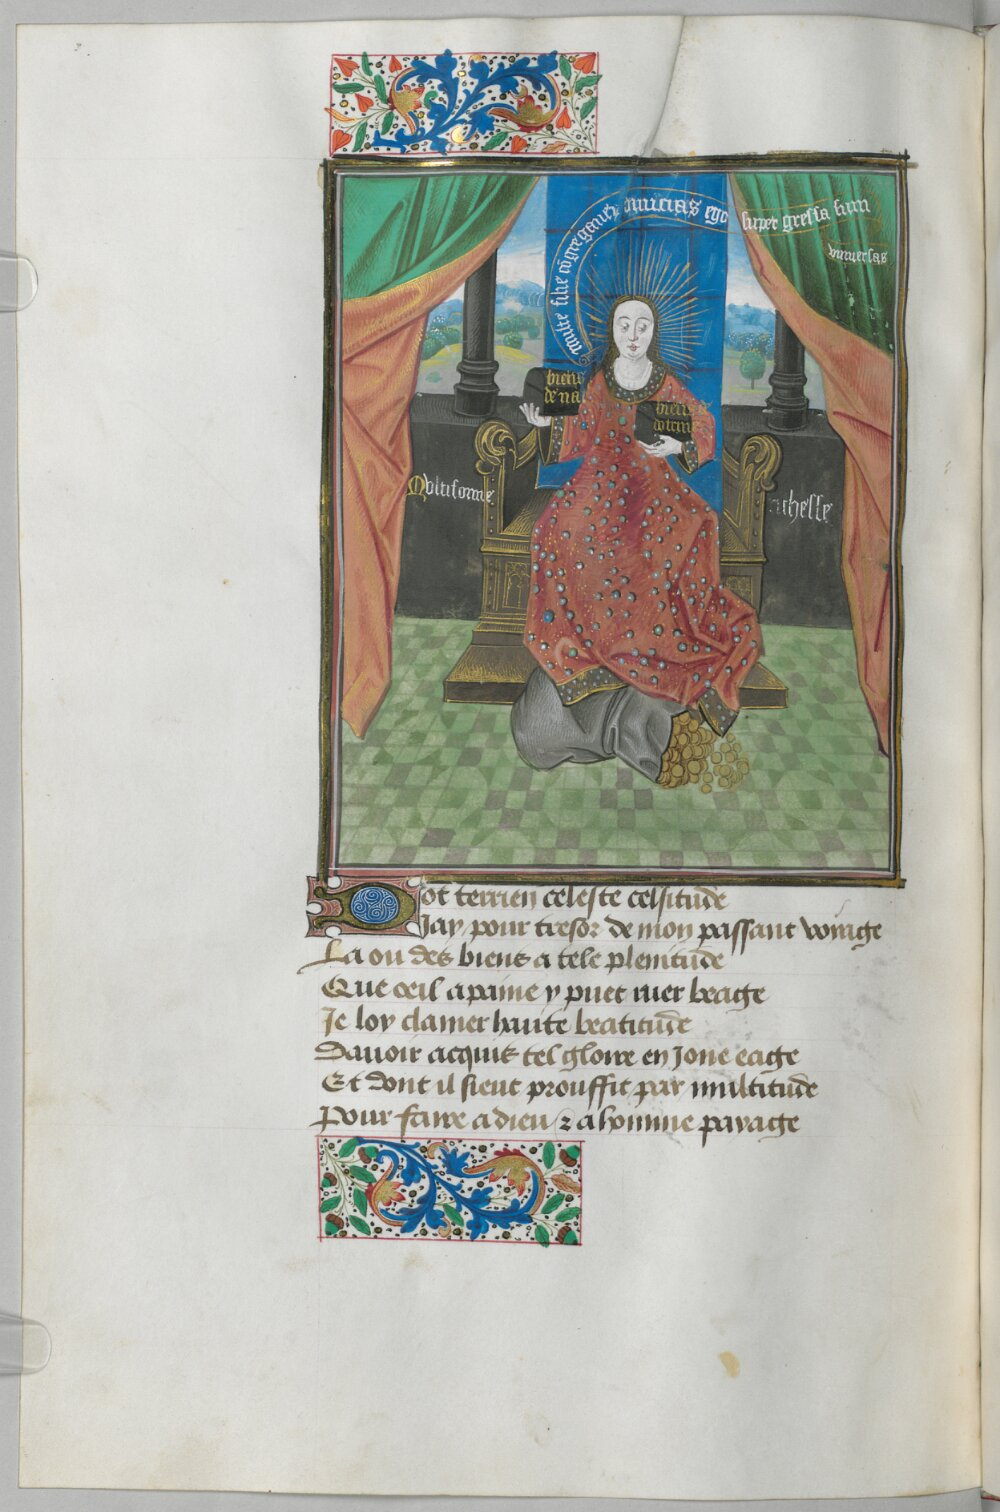 multe filie cõgregaue₹ diuicias ego super gressa sum
vniuersas
biens
de na
biens
Multiforme
richesse
Dot terrien celeste celsitude
Jay pour tresor de mon passant voiage
La ou des biens a tele plenitude
Que oeil a paine y puet ruer beage
Je loy clamer haute beatitude
Dauoir acquis tel gloire en jone eage
Et dont il sieut prouffit par multitude
Pour faire a dieu ⁊ a homme parage